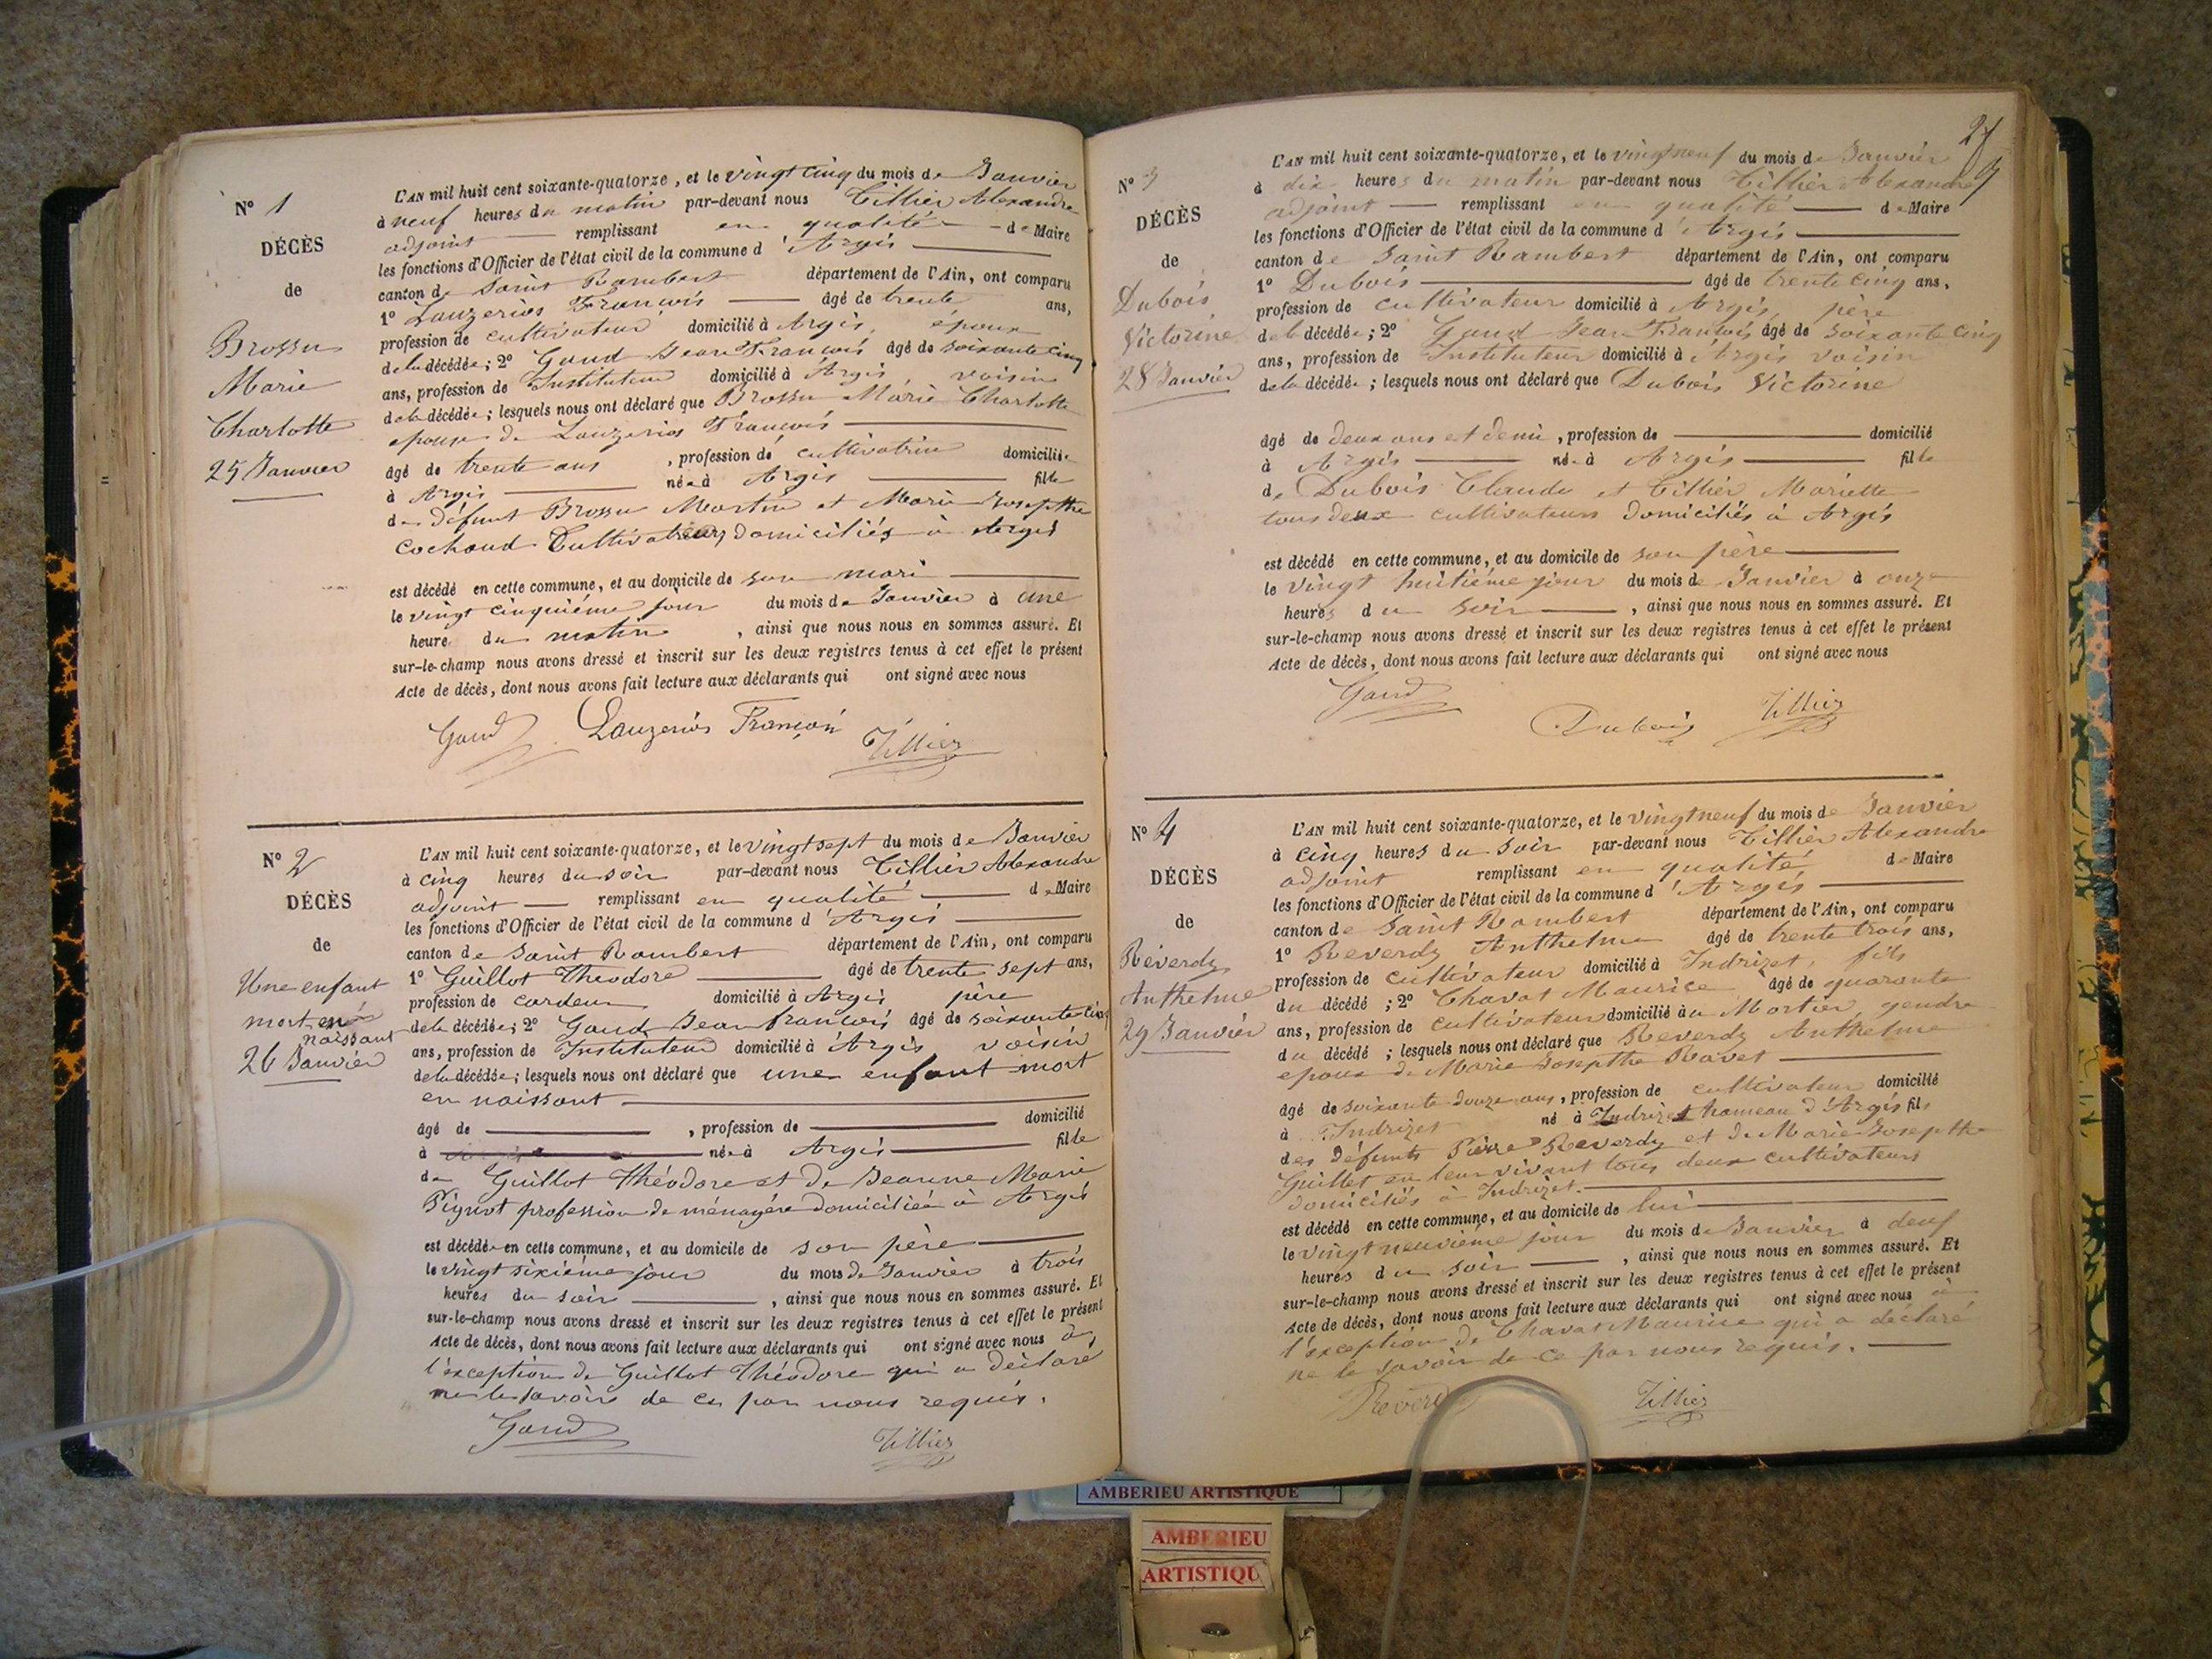 N° 1
DÉCÈS
de
Brossu
Marie
Charlotte
25 Janvier
L'AN mil huit cent soixante-quatorze, et le vingt cinq du mois de Janvier
à neuf heures du matin par-devant nous Tillier Alexandre
adjoint remplissant en qualité de Maire
les fonctions d'Officier de l'état civil de la commune d'Argis
canton de Saint Rambert département de l'Ain, ont comparu
1° Lauzerios François âgé de trente ans,
profession de cultivateur domicilié à Argis, époux
de la décédée; 2° Gaud Jean François âgé de soixante cinq
ans, profession de Instituteur domicilié à Argis voisin
de la décédée; lesquels nous ont déclaré que Brossu Marie Charlotte
epouse de Lauzerios François
âgé de trente ans, profession de cultivatrice domiciliée
à Argis née à Argis fille
de défunt Brossu Martin et Marie Josephte
Cochoud Cultivateurs domiciliés à Argis
est décédé en cette commune, et au domicile de son mari
le vingt cinquième jour du mois de Janvier à une
heure du matin, ainsi que nous nous en sommes assuré. Et
sur-le-champ nous avons dressé et inscrit sur les deux registres tenus à cet effet le présent
Acte de décès, dont nous avons fait lecture aux déclarants qui ont signé avec nous
Gaud Lauzerios François Tillier
N° 2
DÉCÈS
de
Une enfant
mort en
naissant
26 Janvier
L'AN mil huit cent soixante-quatorze, et le vingt sept du mois de Janvier
à cinq heures du soir par-devant nous Tillier Alexandre
adjoint remplissant en qualité de Maire
les fonctions d'Officier de l'état civil de la commune d'Argis
canton de Saint Rambert département de l'Ain, ont comparu
1° Guillot Théodore âgé de trente sept ans,
profession de cardeur domicilié à Argis père
de la décédée; 2° Gaud Jean François âgé de soixante cinq
ans, profession de Instituteur domicilié à Argis voisin
de la décédée; lesquels nous ont déclaré que une enfant mort
en naissant
âgé de , profession de domicilié
à née à Argis fille
de Guillot Théodore et de Jeanne Marie
Pignot profession de ménagère domiciliée à Argis
est décédée en cette commune, et au domicile de son père
le vingt sixième jour du mois de Janvier à trois
heures du soir, ainsi que nous nous en sommes assuré. Et
sur-le-champ nous avons dressé et inscrit sur les deux registres tenus à cet effet le présent
Acte de décès, dont nous avons fait lecture aux déclarants qui ont signé avec nous à
l'exception de Guillot Théodore qui a déclaré
ne le savoir de ce par nous requis.
Gaud Tillier
27
N° 3
DÉCÈS
de
Dubois
Victorine
28 Janvier
L'AN mil huit cent soixante-quatorze, et le vingt neuf du mois de Janvier
à dix heures du matin par-devant nous Tillier Alexandre
adjoint remplissant en qualité de Maire
les fonctions d'Officier de l'état civil de la commune d'Argis
canton de Saint Rambert département de l'Ain, ont comparu
1° Dubois âgé de trente cinq ans,
profession de cultivateur domicilié à Argis, père
de la décédée; 2° Gaud Jean François âgé de soixante cinq
ans, profession de Instituteur domicilié à Argis voisin
de la décédée; lesquels nous ont déclaré que Dubois Victorine
âgé de deux ans et demi, profession de domicilié
à Argis née à Argis fille
de Dubois Claude et Tillier Mariette
tous deux cultivateurs domiciliés à Argis
est décédé en cette commune, et au domicile de son père
le vingt huitième jour du mois de Janvier à onze
heures du soir, ainsi que nous nous en sommes assuré. Et
sur-le-champ nous avons dressé et inscrit sur les deux registres tenus à cet effet le présent
Acte de décès, dont nous avons fait lecture aux déclarants qui ont signé avec nous
Gaud Dubois Tillier
N° 4
DÉCÈS
de
Réverdy
Anthelme
29 Janvier
L'AN mil huit cent soixante-quatorze, et le vingt neuf du mois de Janvier
à cinq heures du soir par-devant nous Tillier Alexandre
adjoint remplissant en qualité de Maire
les fonctions d'Officier de l'état civil de la commune d'Argis
canton de Saint Rambert département de l'Ain, ont comparu
1° Reverdy Anthelme âgé de trente trois ans,
profession de cultivateur domicilié à Indrizet, fils
du décédé; 2° Chavat Maurice âgé de quarante
ans, profession de cultivateur domicilié au Mortier gendre
du décédé; lesquels nous ont déclaré que Reverdy Anthelme
epoux de Marie Josephte Ravet
âgé de soixante douze ans, profession de cultivateur domicilié
à Indrizet né à Indrizet hameau d'Argis fils
des défunts Pierre Reverdy et de Marie Josephte
Guillet en leur vivant tous deux cultivateurs
domiciliés à Indrizet.
est décédé en cette commune, et au domicile de lui
le vingt neuvième jour du mois de Janvier à deuf
heures du soir, ainsi que nous nous en sommes assuré. Et
sur-le-champ nous avons dressé et inscrit sur les deux registres tenus à cet effet le présent
Acte de décès, dont nous avons fait lecture aux déclarants qui ont signé avec nous à
l'exception de Chavat Maurice qui a déclaré
ne le savoir de ce par nous requis.
Reverd Tillier
AMBERIEU ARTISTIQUE
AMBERIEU
ARTISTIQU